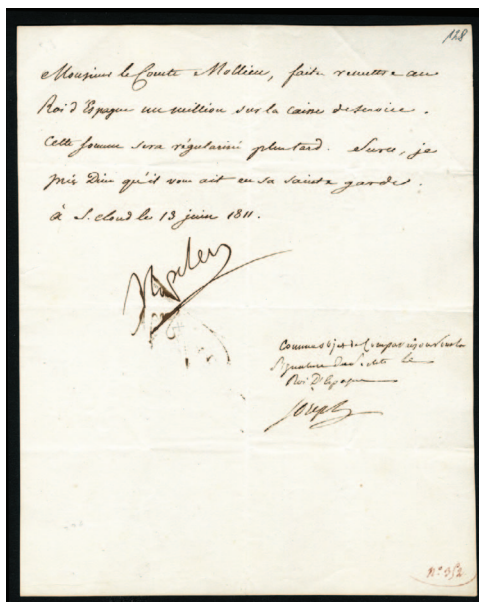 128
Monsieur le Comte Mollien, faites remettre au
Roi d'Espagne un million sur la caisse de service.
Cette somme sera régularisée plus tard. Sur ce, je
prie Dieu qu'il vous ait en sa sainte garde.
à S. Cloud le 13 juin 1811.
Napoleon
Comme objet de Comparaison sur la
Signature de le
Roi D'Espagne
Joseph
N° 352